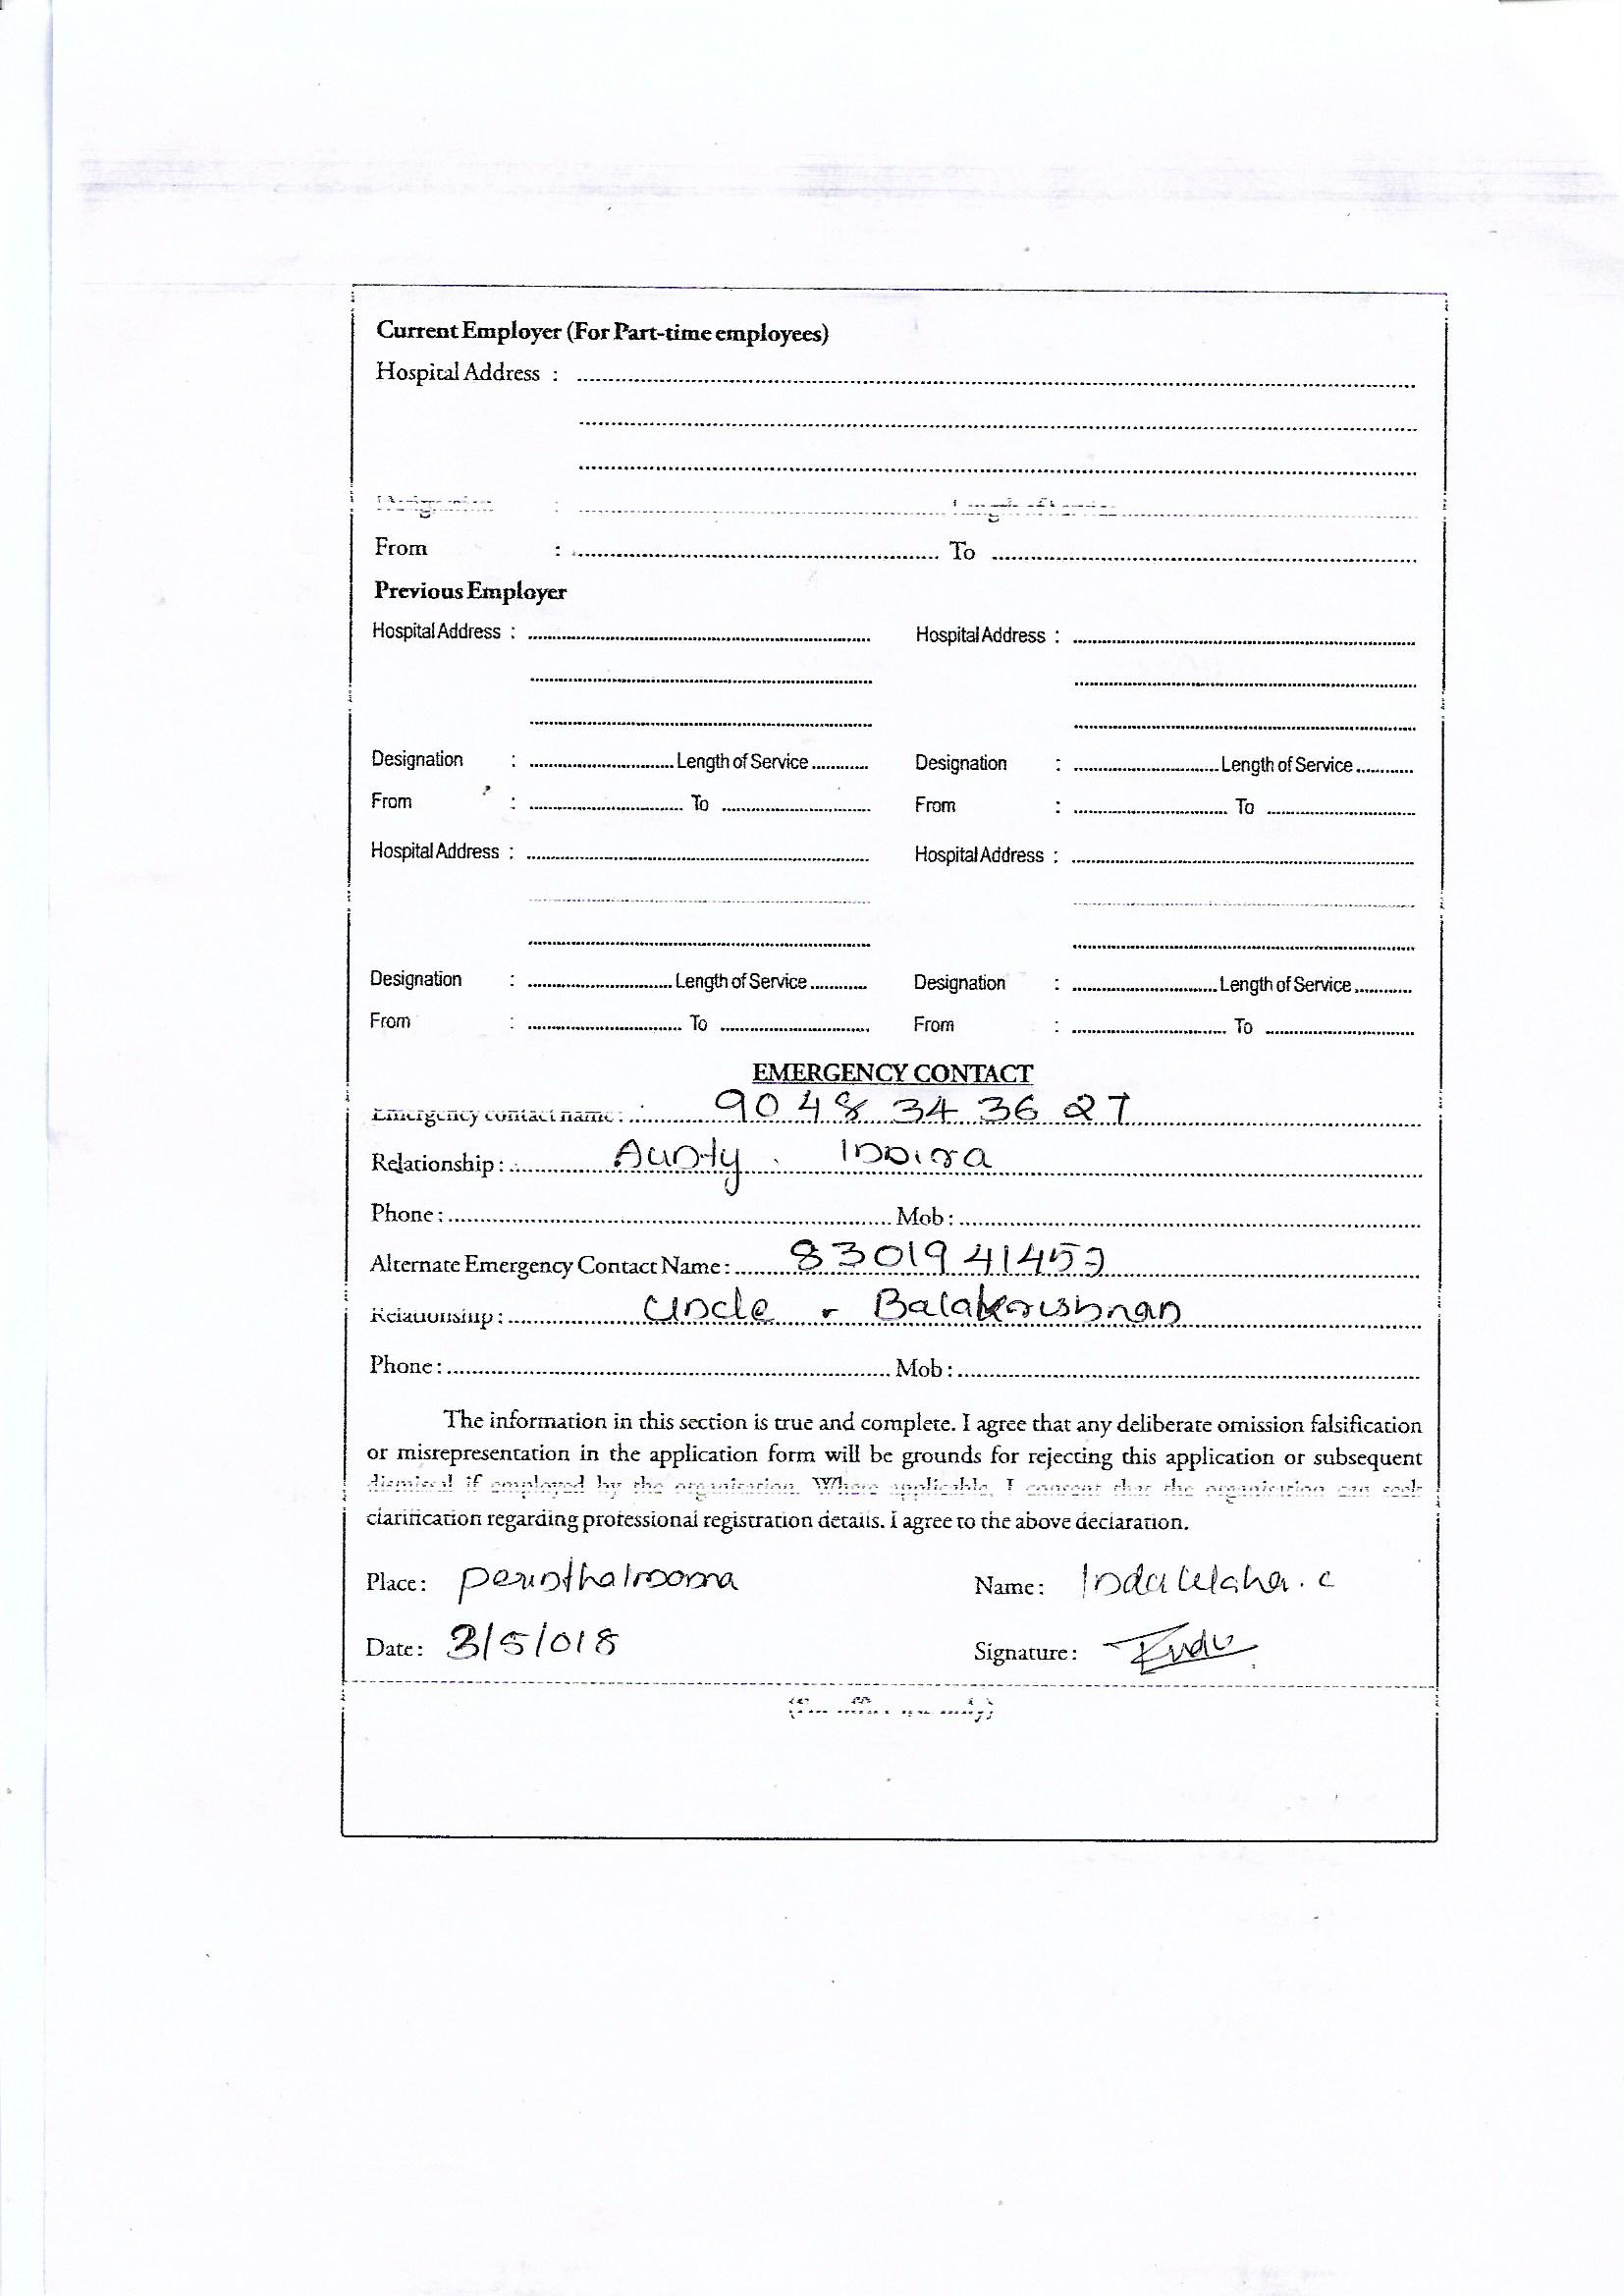 Current Employer (For Part-time employees)
Hospital Address : ........................................
........................................
........................................
Designation : ........................................ Length of Service ........................................
From : ........................................ To ........................................
Previous Employer
Hospital Address : .................... Hospital Address : ....................
.................... ....................
.................... ....................
Designation : .................... Length of Service ............ Designation : .................... Length of Service ............
From : .................... To .................... From : .................... To ....................
Hospital Address : .................... Hospital Address : ....................
.................... ....................
.................... ....................
Designation : .................... Length of Service ............ Designation : .................... Length of Service ............
From : .................... To .................... From : .................... To ....................
EMERGENCY CONTACT
Emergency contact name : 9048 34 36 27
Relationship : Aunty . Indira
Phone : .................... Mob : ....................
Alternate Emergency Contact Name : 8301941453
Relationship : Uncle - Balakrishnan
Phone : .................... Mob : ....................
The information in this section is true and complete. I agree that any deliberate omission falsification
or misrepresentation in the application form will be grounds for rejecting this application or subsequent
dismissal if employed by the organisation. Where applicable, I consent that the organisation can seek
clarification regarding professional registration details. I agree to the above declaration.
Place : perinthalmanna Name : Indulekha . c
Date : 3/5/018 Signature : Indu
(For office use only)